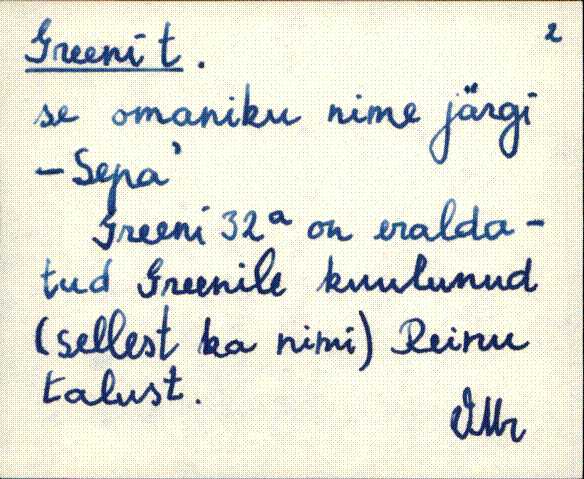 Greeni t. 2
se omaniku nime järgi
- Sepa'
Greeni 32ª on eralda-
tud Greenile kuulunud
(sellest ka nimi) Reinu
talust.